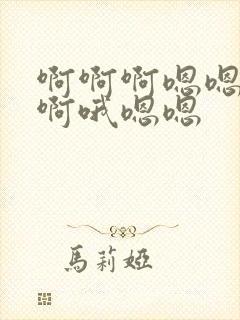 啊啊啊嗯嗯
啊哦嗯嗯
馬莉婭